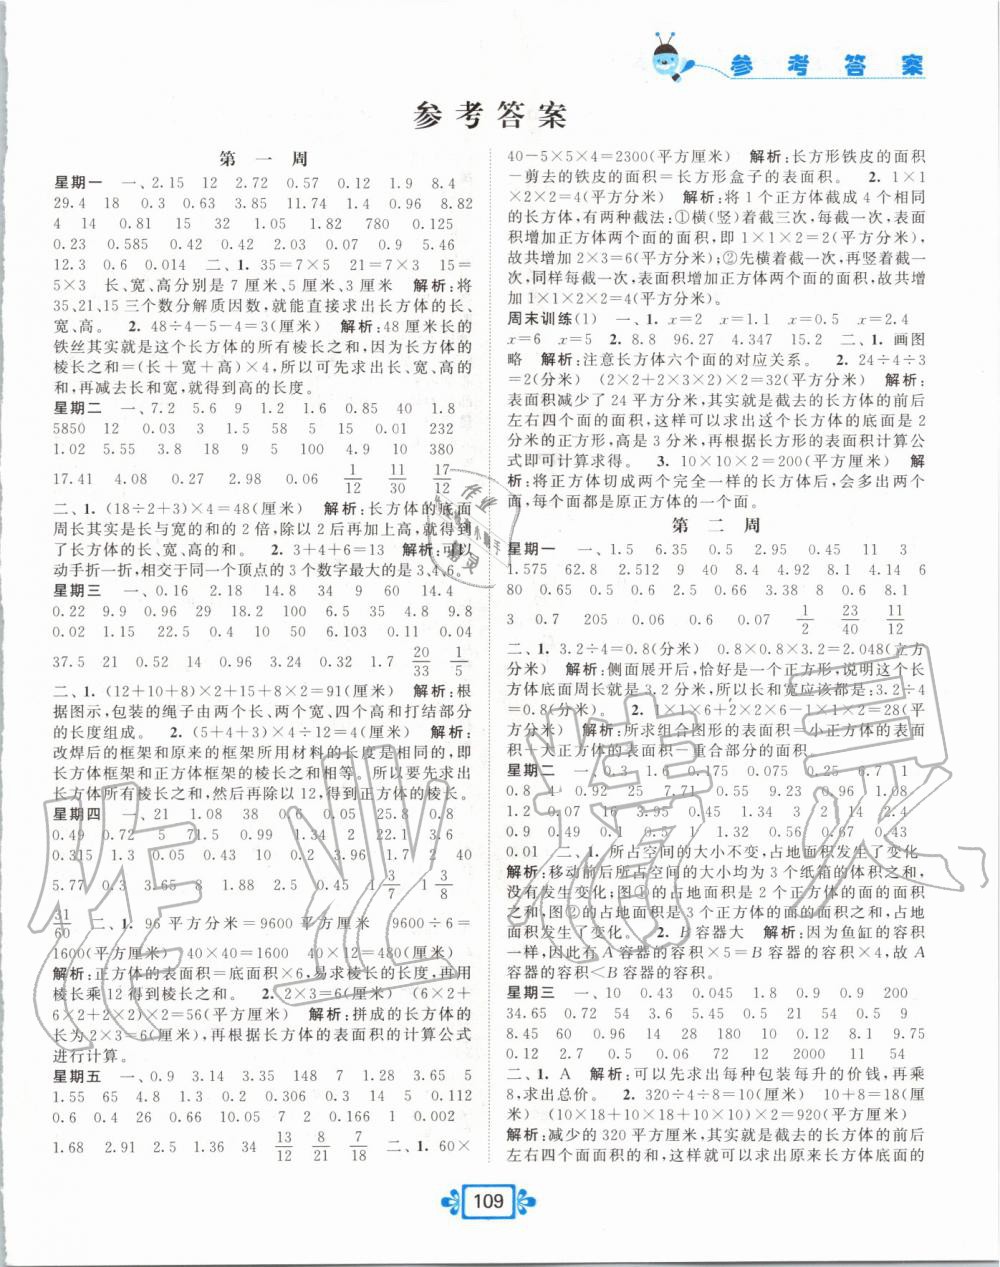 参考答案
参考答案
第一周
星期一 一、2.15 12 2.72 0.57 0.12 1.9 8.4
29.4 18 0.3 0.63 3.85 11.74 1.4 0.96 8.82
4 14 0.81 15 0.45 1.82 1.082 780 0.125
0.23 0.585 0.42 0.42 0.45 0.9 0.9 5.46
12.3 0.6 0.014 二、1. 35=7×5 21=7×3 15=
5×3 长、宽、高分别是7厘米、5厘米、3厘米 解析:将
35,21,15三个数分解质因数,就能直接求出长方体的长、
宽、高。 2. 48÷4-5-4=3(厘米) 解析:48厘米长的
铁丝其实就是这个长方体的所有棱长之和,因为长方体的
棱长之和=(长+宽+高)×4,所以可先求出长、宽、高的
和,再减去长和宽,就可得到高的长度。
星期二 一、7.2 5.6 9 1.2 1.6 0.85 40 1.8
5850 12 0.03 3 1.5 58 5 15 0.01 232
1.02 5.55 3.8 18 9 5 100 4.4 0.09 380
17.41 4.08 0.68 0.24 0.07 1/12 11/30 17/12
二、1. (18÷2+3)×4=48(厘米) 解析:长方体的底面
周长其实是长与宽的和的2倍,除以2后再加上高,就得到
了长方体的长、宽、高的和。 2. 3+4+6=13 解析:可以
动手折一折,相交于同一个顶点的3个数字最大的是3、4、6。
星期三 一、0.16 2.18 14.8 34 9 60 14.4
0.22 9.9 0.96 29 18 100 6.5 35 4.8 9.8
0.02 1.15 22.5 0.4 10 6.103 0.11 0.04
37.5 21 20 0.15 1.34 0.32 1.7 20/33 1/5
二、1. (12+10+8)×2+12+15+8×2=91(厘米) 解析:根
据图示,包装的绳子由两个长、两个宽、四个高和打结部分
的长度组成。 2. (5+4+3)×4÷12=4(厘米) 解析:
改焊后的框架和原来的框架所用材料的长度是相同的,即
长方体框架和正方体框架的棱长之和相等。所以要先求出
长方体框架的棱长之和,然后除以12,得到正方体的棱长。
星期四 一、21 1.08 38 0.6 0.05 25.8 0.8
0.49 0.72 5 71.5 0.99 1.34 2 22.1 3.6
0.315 1.3 0.15 10 0.2 3.96 1.7 2 40
5.77 0.3 3.65 8 1.88 2.5 0.51 1 3/7 1 3/8
31/60 二、1. 96平方分米=9600平方厘米 9600÷6=
1600(平方厘米) 40×40=1600 40×12=480(厘米)
解析:正方体的表面积=底面积×6,易求得棱长的长度,再用
棱长乘12得到棱长之和。 2. 2×3=6(厘米) (6×2+
6×2+2×2)×2=56(平方厘米) 解析:拼成的长方体的
长为2×3=6(厘米),再根据长方体的表面积的计算公式
进行计算。
星期五 一、0.9 3.14 3.35 148 7 1.28 3.65 5
1.55 65 4.8 2 1.2 0.306 0.3 14 5 0.112
0.6 0.4 26 0.66 10.05 7 2 0.166 1 0.002
1.68 2.91 2.5 1.36 34 13/12 8/21 7/18 二、1. 60×
40-5×5×4=2300(平方厘米) 解析:长方形铁皮的面积
-剪去的铁皮的面积=长方形盒子的表面积。 2. 1×1
×2×2=4(平方分米) 解析:将1个正方体截成4个相同
的长方体,有两种截法:①横(竖)着截三次,每截一次,表面
积增加正方体两个面的面积,即1×1×2=2(平方分米),
故共增加2×3=6(平方分米);②先横着截一次,再竖着截
一次,同样每截一次,表面积增加正方体两个面的面积,故共增
加1×1×2×2=4(平方分米)。
周末训练(1) 一、1. x=2 x=1.1 x=0.5 x=2.4
x=6 x=5 2. 8.8 96.27 4.347 15.2 二、1. 画图
略 解析:注意长方体六个面的对应关系。 2. 24÷4÷3
=2(分米) (2×2+2×3×2)×2=32(平方分米) 解析:
表面积减少了24平方分米,其实就是截去的长方体的前后
左右四个面的面积,这样可以求出这个长方体的底面是2
分米的正方形,高是3分米,再根据长方形的表面积计算公
式即可计算求得。 3. 10×10×2=200(平方厘米) 解
析:将正方体切成两个完全一样的长方体后,会多出两个
面,每个面都是原正方体的一个面。
第二周
星期一 一、1.5 6.35 0.5 2.95 0.45 11 3
1.575 62.8 2.512 9 40 8.4 4.92 1.1 4.14 6
80 0.65 0.5 0.6 2.5 0.66 3.38 8 0.6 8.1
3 0.7 205 0.06 0.6 0.07 1/2 23/40 11/12
二、1. 3.2÷4=0.8(分米) 0.8×0.8×3.2=2.048(立方
分米) 解析:侧面展开后,恰好是一个正方形,说明这个长
方体底面周长就是3.2分米,所以长和宽应该都是:3.2÷4
=0.8(分米)。 2. 1×1×6+2×2×6-1×1×2=28(平
方分米) 解析:所求组合图形的表面积=小正方体的表面
积+大正方体的表面积-重合部分的面积。
星期二 一、0.3 1.6 0.175 0.075 0.25 0.7 1
0.8 4 0.92 25 7.71 0.55 9.23 0.96 1.08
1.2 0.07 16 3.95 0.45 1.25 14 2.8 2.4
0.93 0.49 0.1 0.5 1 1.33 0.56 0.67 0.43
0.01 二、1. 所占空间的大小不变,占地面积发生了变化
解析:移动前后所占空间的大小均为3个纸箱的体积之和,
没有发生变化;图①的占地面积是2个正方体的面的面积
之和,图②的占地面积是3个正方体的面的面积之和,占地
面积发生了变化。 2. B容器大 解析:因为鱼缸的容积
一样,因此A容器的容积×5=B容器的容积×4,故A
容器的容积<B容器的容积。
星期三 一、10 0.43 0.045 1.8 0.9 0.9 200
34.65 0.72 54 3.6 5.5 0.95 21 54 0.5 9
0.65 80 0.96 14 28 180 10 0.12 8.1 9.75
0.12 2.2 0.5 0.06 72 12 2000 11 0.25
二、1. A 解析:可以先求出每种包装每升的价钱,再乘
8,求出总价。 2. 320÷4÷8=10(厘米) 10+8=18(厘
米) (10×18+10×18+10×10)×2=920(平方厘米)
解析:减少的320平方厘米,其实就是截去的长方体的前后
左右四个面面积的和,这样可以求出原来长方体的底面的
109